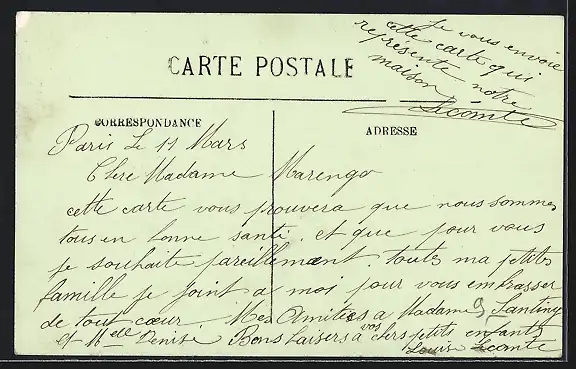 Je vous envoie
cette carte qui
represente notre
maison
Lecomte
CARTE POSTALE
CORRESPONDANCE
ADRESSE
Paris Le 11 Mars
Chere Madame Marengo
cette carte vous prouvera que nous sommes
tous en bonne santé. et que pour vous
je souhaite pareillement. toutes ma petites
famille je joint a moi pour vous embrasser
de tout cœur. Mes Amities a Madame Santiny
et Melle Denise Bons baisers a vos chers petits enfants
Louise Lecomte